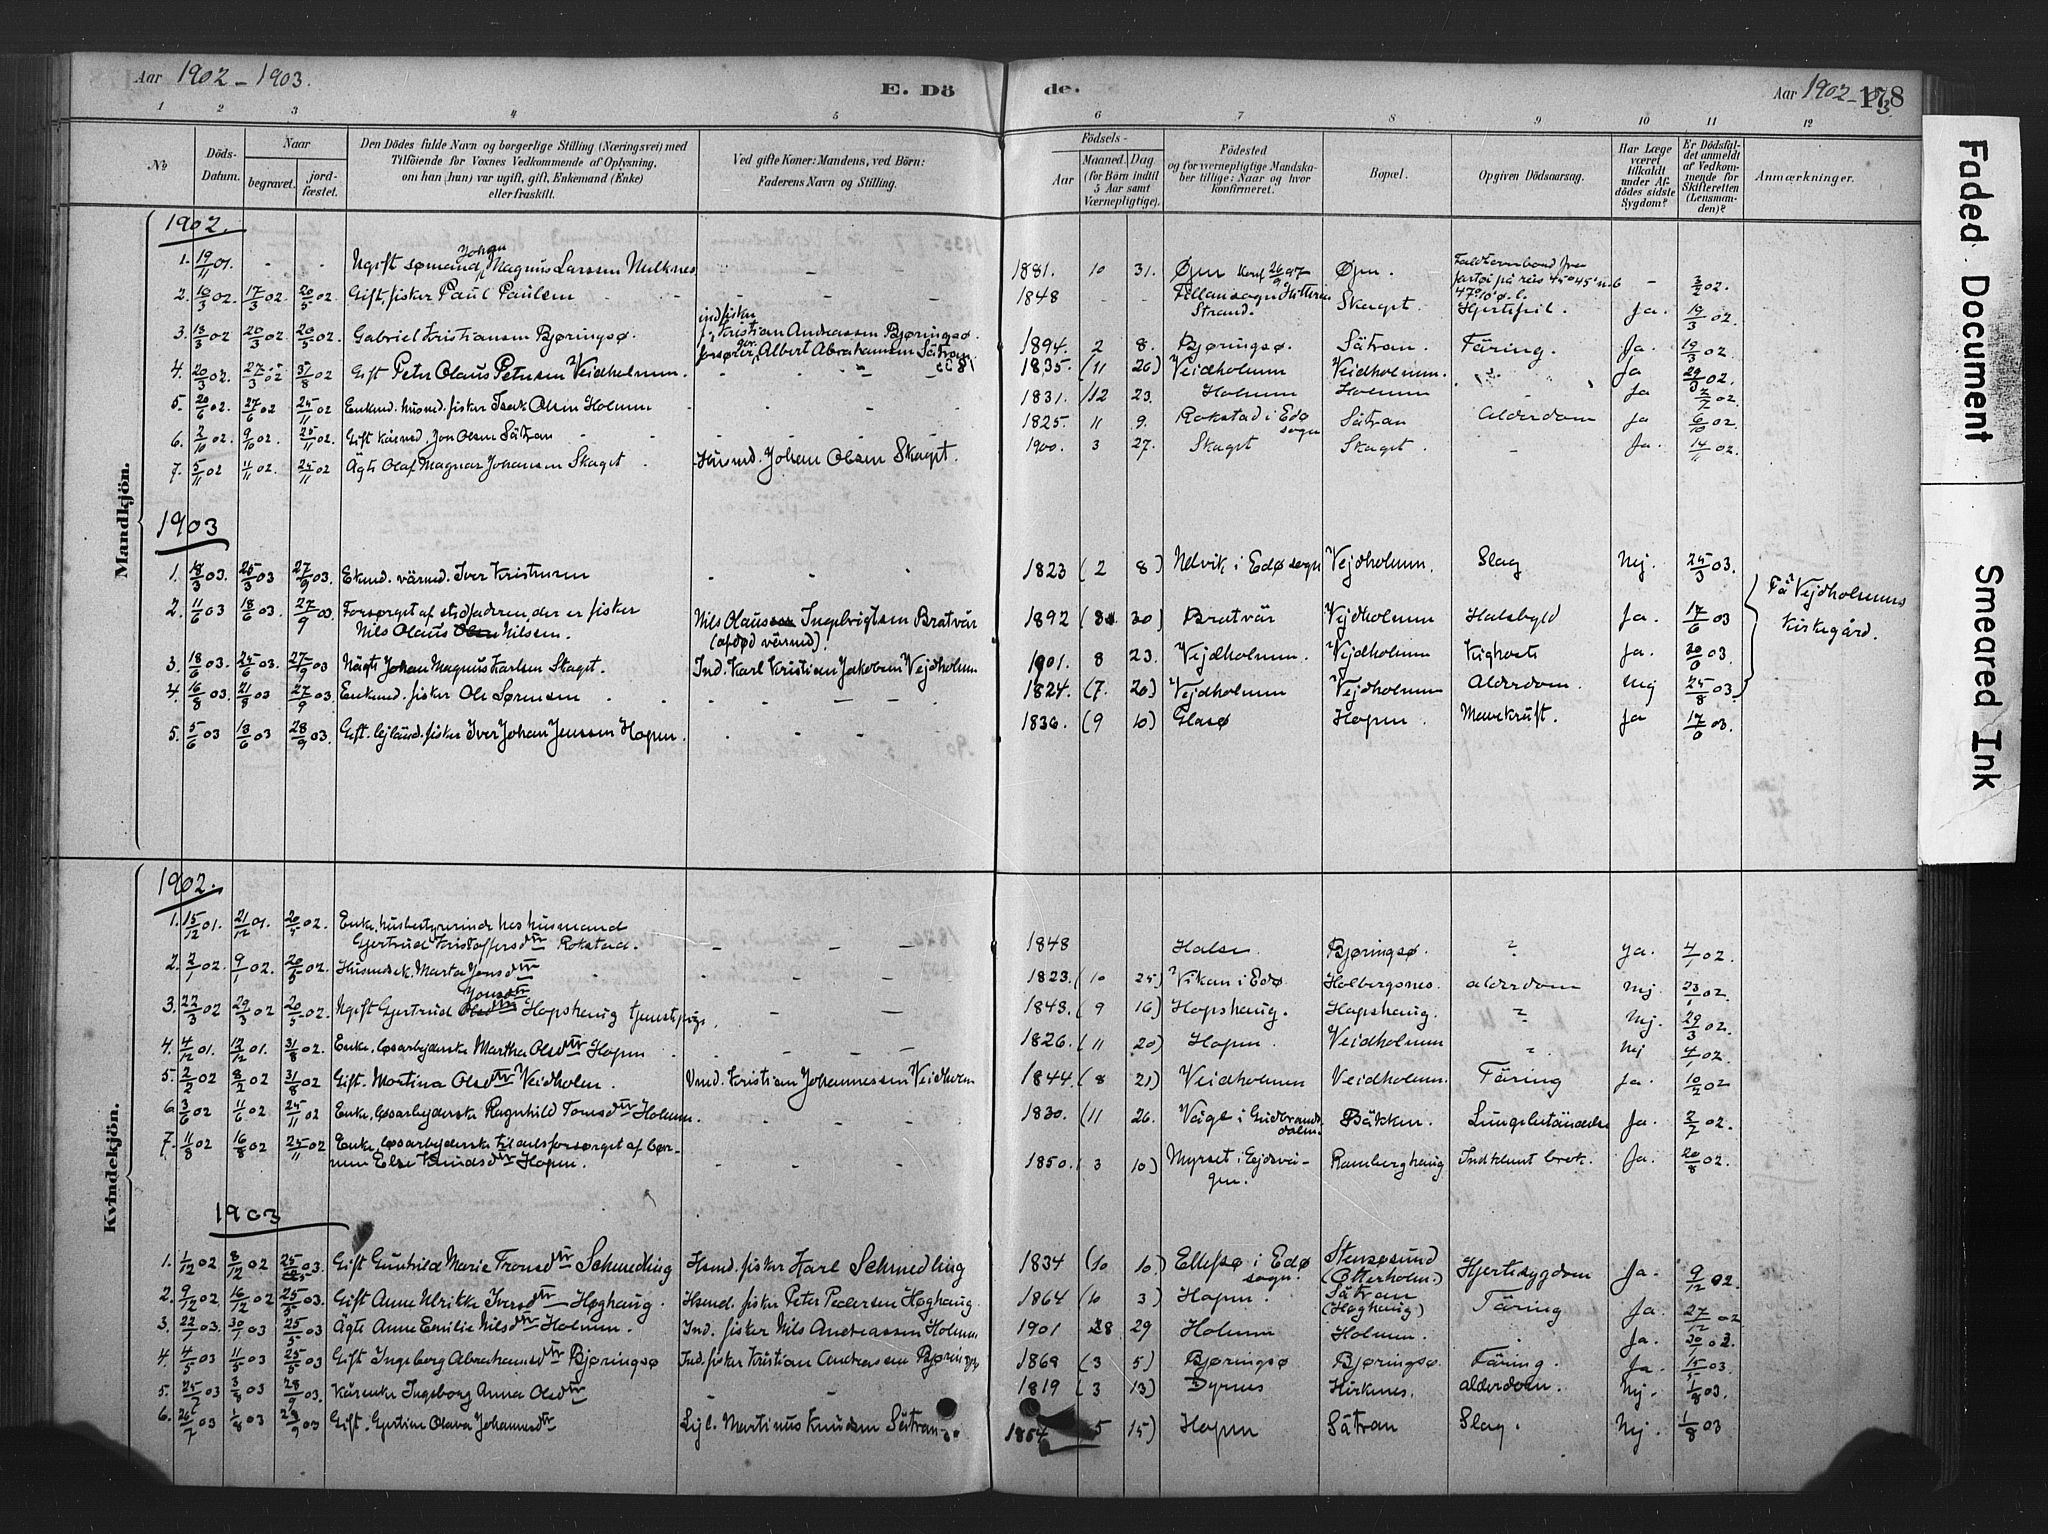 Aar 1902-1903.
E. Døde.
Aar 1902-03
178
1 2 3 4 5 6 7 8 9 10 11 12
No
Døds-Datum.
Naar
begravet.
jord-fæstet.
Den Dødes fulde Navn og borgerlige Stilling (Næringsvei) med
Tilføiende for Voxnes Vedkommende af Oplysning,
om han (hun) var ugift, gift, Enkemand (Enke)
eller fraskilt.
Ved gifte Koner: Mandens, ved Børn:
Faderens Navn og Stilling.
Fødsels-
Aar
Maaned. Dag
(for Børn indtil
5 Aar samt
Værnepligtige).
Fødested
og for værnepligtige Mandska-
ber tillige: Naar og hvor
konfirmeret.
Bopæl.
Opgiven Dødsaarsag.
Har Læge
været
tilkaldt
under Af-
dødes sidste
Sygdom?
Er Dødsfal-
det anmeldt
af Vedkom-
mende for
Skifteretten
(Lensman-
den)?
Anmærkninger.
Mandkjøn.
1902.
1. 19/11 01. - - Ugift sømand Johan Magnus Larssen Melknes - - 1881. 10 31. Øjen Konf 26/9 97 Øjen. - 3/2 02.
2. 10/3 02. 17/3 02 20/5 02. Gift, fisker Paul Paulsen - 1848 - - Fillansogn Hitteren Strand. Skaget. Hjertefeil. Ja. 19/3 02
3. 13/3 02 20/3 02 20/5 02. Gabriel Kristiansen Bjøringsø. indfisker Kristian Andreassen Bjøringsø. forsørger Albert Abrahamsen Sätran 1894. 2 8. Bjøringsø. Sätran. Täring. Ja. 19/3 02.
4. 20/3 02. 27/3 02 31/8 02 Gift Peter Olaus Petersen Veidholmen. 1835. (11 26) Veidholmen Veidholmen. Ja 29/3 02.
5. 20/6 02. 27/6 02 25/11 02 Enkmd. husmd. fisker Isak Olsen Holmen 1831. 12 23. Holmen Holmen Ja 2/7 02.
6. 2/10 02. 9/10 02. 25/11 02. Gift kårmd. Jon Olsen Sätran 1825. 11 9. Rokstad i Edø sogn Sätran Alderdom Ja 6/10 02.
7. 5/11 02 11/11 02. 25/11 02 Ägte Olaf Magnar Johansen Skaget Husmd. Johan Olsen Skaget. 1900. 3 27. Skaget Skaget. - Ja. 14/11 02.
1903
1. 18/3 03. 25/3 03 27/9 03. Ekmd. värmd. Iver Kristensen - - - 1823 (2 8) Nelvik i Edø sogn Vejdholmen. Slag Nej. 25/3 03.
2. 11/6 03 18/6 03. 27/9 03 Forsørget af stedfaderen, der er fisker
Nils Olaus Nilsen. Nils Olaus Ingebrigtsen Bratvär
(afdød värmd). 1892 (8 30) Bratvär Vejdholmen Halsbyld Ja. 17/6 03
På Vejdholmens
kirkegård.
3. 18/6 03. 25/6 03. 27/9 03 Uägte Johan Magnus Karlsen Skaget. Ind. Karl Kristian Jakobsen Vejdholmen 1901. 8 23. Vejdholmen. Vejdholmen Kighoste Ja. 03.
4. 16/8 03. 21/8 03 27/9 03 Enkmd. fisker Ole Sørensen 1824. (7. 20) Vejdholmen Vejdholmen Alderdom. Nej 25/8 03.
5. 5/6 03 18/6 03 28/9 03. Gift. lejländ. fisker Iver Johan Jenssen Hopen. 1836. (9 10) Glasø Hopen. Mavekräft. Ja 03.
Kvindekjøn.
1902.
1. 15/12 01. 21/12 01. 20/5 02. Enke, husbestyrerinde hos husmand
Gjertrud Kristoffersdtr Rokstad. 1848 Halse Bjøringsø. " Ja. 4/1 02.
2. 2/1 02. 9/1 02. 20/5 02. Husmdsek. Marta Jonsdtr 1823. (10 25) Vikan i Edø Holbergsnes. alderdom Nej. 23/1 02.
3. 22/3 02 29/3 02 20/5 02. Ugift Gjertrud Jonsdtr Hopshaug tjenestpige. 1843. (9 16) Hopshaug. Hopshaug. " Nej. 29/3 02.
4. 4/12 01. 12/12 01. 31/8 02. Enke, løsarbejderske Martha Olsdtr Hopen 1826. (11 20) Hopen. Veidholmen " Nej 4/1 02.
5. 2/2 02 8/2 02 31/8 02 Gift. Martina Olsdtr Veidholm. Kristian Johannessen Veidholm 1844. (8 21) Veidholmen Veidholmen. Täring Ja. 10/2 02
6 3/6 02 11/6 02 25/11 02 Enke, løsarbejderske Ragnhild Tomsdtr Holmen. 1830. (11 26. i Gudbrands dalen. Bäkken. Lungebetändelse Ja. 2/7 02.
7. 11/8 02 16/8 02 25/11 02 Enke løsarbejderske tildels forsørget af bør-
nene Else Knudsdtr Hopen. 1850. (3 10) Myrset i Ejdsvå-
gen. Ramberghaug Indklemt brok. Ja. 20/8 02.
1903
1. 1/12 02 8/12 02 25/5 03. Gift Gunhild Marie Tronsdtr Schmedling Hsmd. fisker Karl Schmedling 1834 (10 10.) Ellefsø i Edø sogn. Stensøsund (Otterholm.) Hjertesygdom Ja. 9/12 02.
2. 9/12 02. 16/12 02 25/5 03. Gift Anne Ulrikke Iversdtr Høghaug. Hsmd. fisker Peter Pedersen Høghaug. 1864 (10 3) Hopen. Sätran (Høghaug) Täring Ja. 27/12 02
3. 22/1 03. 30/1 03. 25/5 03 Ägte Anne Emilie Nilsdtr Holmen. Ind. fisker Nils Andreassen Holmen 1901 29 Holmen Holmen. Ja. 03.
4. 4/5 03 11/5 03 25/5 03 Gift Ingeborg Abrahamsdtr Bjøringsø Ind. fisker Kristian Andreassen Bjøringsø 1869 (3 5) Bjøringsø Bjøringsø. Täring. Ja. 15/5 03.
5. 25/7 03 3/8 03 28/9 03. Kårenke Ingeborg Anna Olsdtr 1819 (3 13) Dyrnes Hirknes. alderdom. Nej. 1/8 03.
6. 26/7 03 1/8 03 28/9 03 Gift. Gjertine Olava Johannesdtr Lejl. Martinus Knudsen Sätran. 1854 5 15) Hopen Sätran Slag. Nej 1/8 03
Faded Document
Smeared Ink